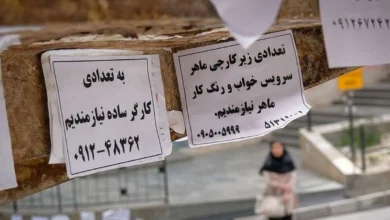 به تعدادی
کارگر ساده نیازمندیم
۰۹۱۲-۴۸۳۶۲
تعدادی زیر کارچی ماهر
سرویس خواب و رنگ کار
ماهر نیازمندیم.
۰۹۰۵۰۰۵۹۹۹